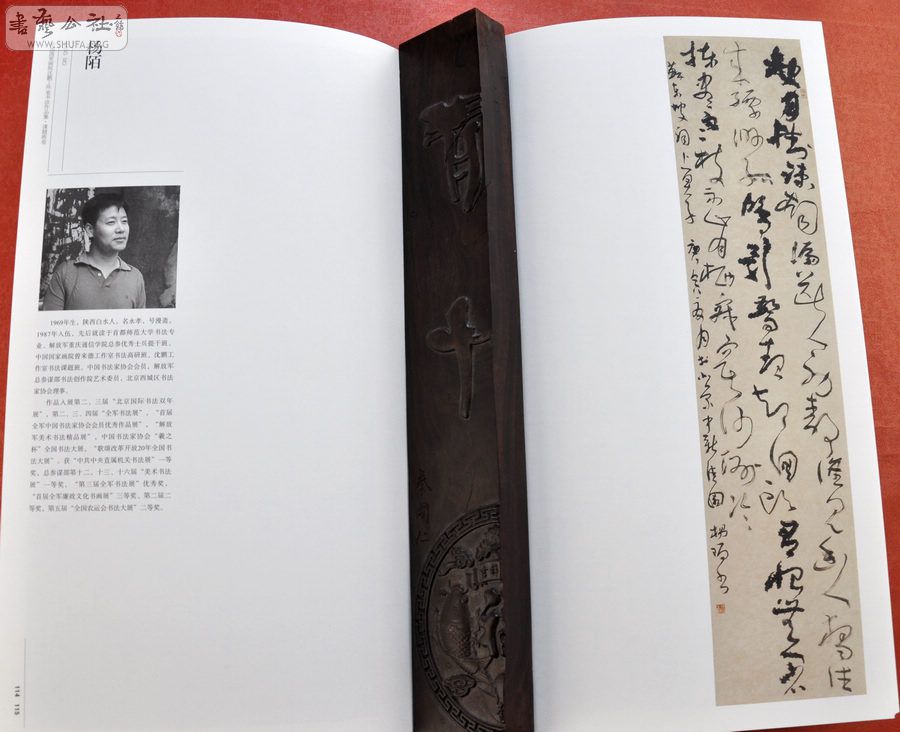 書藝公社
WWW.SHUFA.ORG
杨陌
1969年生，陕西白水人，名永孝，号漫斋，
1987年入伍，先后就读于首都师范大学书法专
业、解放军重庆通信学院总参优秀士兵提干班、
中国国家画院曾来德工作室书法高研班、沈鹏工
作室书法课题班。中国书法家协会会员，解放军
总参谋部书法创作院艺术委员，北京西城区书法
家协会理事。
作品入展第二、三届“北京国际书法双年
展”，第二、三、四届“全军书法展”，“首届
全军中国书法家协会会员优秀作品展”，“解放
军美术书法精品展”，中国书法家协会“羲之
杯”全国书法大展，“歌颂改革开放20年全国书
法大展”。获“中共中央直属机关书法展”一等
奖、总参谋部第十二、十三、十六届“美术书法
展”一等奖，“第三届全军书法展”优秀奖，
“首届全军廉政文化书画展”三等奖，第二届二
等奖，第五届“全国农运会书法大展”二等奖。
114 115
缺月挂疏桐漏断人初静谁见幽人独往
来缥缈孤鸿影惊起却回头有恨无人省
拣尽寒枝不肯栖寂寞沙洲冷
苏东坡词卜算子 庚寅 月书于京 杨陌书